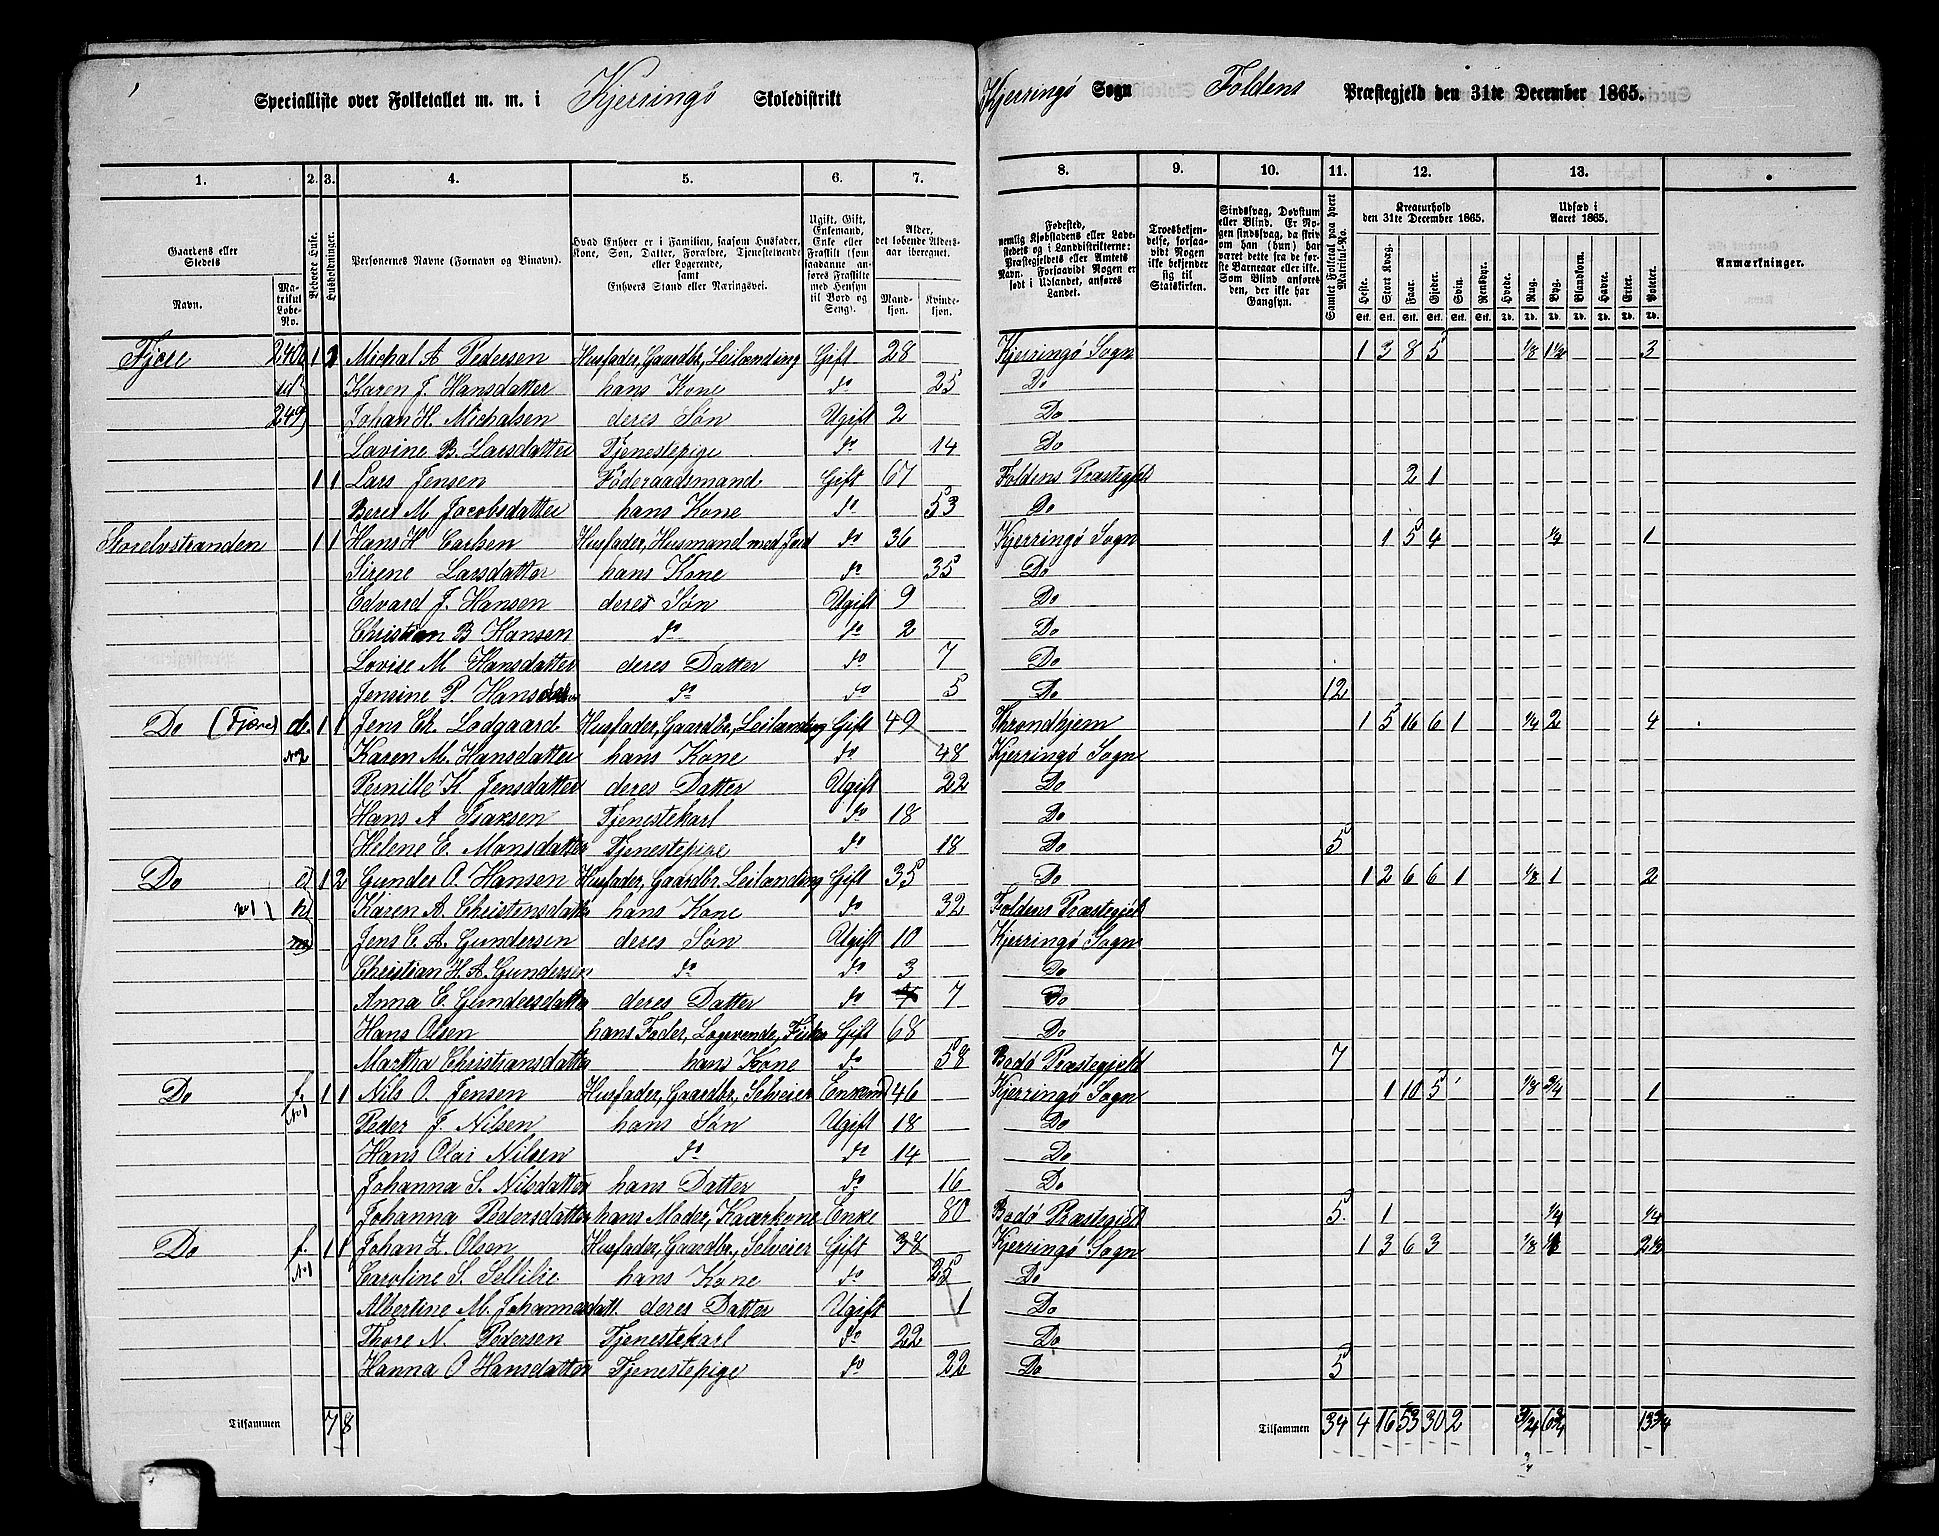 1
Specialliste over Folketallet m. m. i Kjerringø Skoledistrikt Kjerringø Sogn Foldens Præstegjeld den 31te December 1865.
1. 2. 3. 4. 5. 6. 7. 8. 9. 10. 11. 12. 13.
Gaardens eller Stedets Navn. Matrikul Løbe-No. Beboede Huse. Husholdninger. Personernes Navne (Fornavn og Binavn). Hvad Enhver er i Familien, saasom Husfader, Kone, Søn, Datter, Forældre, Tjenestetyende eller Logerende, samt Enhvers Stand eller Næringsvei. Ugift, Gift, Enkemand, Enke eller Fraskilt (som saadanne anføres Fraskilte med Hensyn til Bord og Seng). Alder, det løbende Aldersaar iberegnet. Mandkjøn. Kvindekjøn. Fødested, nemlig Kjøbstadens eller Ladestedets og i Landdistrikterne: Præstegjeldets eller Amtets Navn. Forsaavidt Nogen er født i Udlandet, anføres Landet. Troesbekjendelse, forsaavidt Nogen ikke bekjender sig til Statskirken. Sindssvag, Døvstum eller Blind. Er Nogen sindssvag, da skriv om han (hun) har været dette fra de første Barneaar eller ikke. Som Blind ansøres den, der ikke har Gangsyn. Samlet Folketal paa hvert Matrikul-No. Kreaturhold den 31te December 1865. Heste. Stort Kvæg. Faar. Gjeder. Svin. Rensdyr. Udsæd i Aaret 1865. Hvede. Rug. Byg. Blandkorn. Havre. Erter. Poteter. Anmærkninger.
Fjære 1 2 Michal A Pedersen Husfader, Gaardbr, Leilænding Gift 28 Kjerringø Sogn 1 3 8 5 1/8 1½ 3
Karen J. Hansdatter hans Kone do 25 Do
249 Johan H. Michalsen deres Søn Ugift 2 Do
Lavine B. Larsdatter Tjenestepige do 14 Do
1 1 Lars Jensen Føderaadsmand Gift 67 Foldens Præstegjeld 2 1
Beret M. Jacobsdatter hans Kone do 53 Do
Storelvstranden 1 1 Hans H Carlsen Husfader, Husmand med Jord do 36 Kjerringø Sogn 1 5 4 ¼ 1
Sirene Larsdatter hans Kone do 35 Do
Edvard J. Hansen deres Søn Ugift 9 Do
Christian B Hansen do do 2 Do
Lovise M Hansdatter deres Datter do 7 Do
Jensine P. Hansdatter do do 5 Do 12
Do (Fjære) 1 1 Jens Ch. Lodgaard Husfader, Gaardbr, Leilænding Gift 49 Throndhjem 1 5 16 6 1 ¼ 2 4
No 2 Karen M. Hansdatter hans Kone do 48 Kjerringø Sogn
Pernille K Jensdatter deres Datter Ugift 22 Do
Hans A Isaksen Tjenestekarl do 18 Do
Helene E. Monsdatter Tjenestepige do 18 Do 5
Do 1 2 Gunder O. Hansen Husfader, Gaardbr. Leilænding Gift 35 Do 1 2 6 6 1 1/8 1 2
No 1 Karen A. Christensdatter hans Kone do 32 Foldens Præstegjeld
Jens C. A. Gundersen deres Søn Ugift 10 Kjerringø Sogn
Christian H. A. Gundersen do do 3 Do
Anna E. Gundersdatter deres Datter do 7 Do
Hans Olsen hans Fader, Logerende, Fisker Gift 68 Do
Martha Christiansdatter hans Kone do 58 Bodø Præstegjeld 7
Do f. 1 1 Nils O. Jensen Husfader, Gaardbr, Selveier Enkemd 46 Kjerringø Sogn 1 10 5 1/8 3/4 1
No 1 Peder J. Nilsen hans Søn Ugift 18 Do
Hans Olai Nilsen do do 14 Do
Johanna S. Nilsdatter hans Datter do 16 Do
Johanna Pedersdatter hans Moder, Kaarkone Enke 80 Bodø Præstegjeld 5 1 ¼ ¼
Do f. 1 1 Johan Z. Olsen Husfader, Gaardbr., Selveier Gift 38 Kjerringø Sogn 1 3 6 3 1/8 2½
No 1 Caroline S. Sellilie hans Kone do 25 Do
Albertine M. Johannesdatt. deres Datter Ugift 1 Do
Thore N. Pedersen Tjenestekarl do 22 Do
Hanna O Hansdatter Tjenestepige do 22 Do 5
Tilsammen 7 8 Tilsammen 34 4 16 53 30 2 3/4 6¾ 13¾